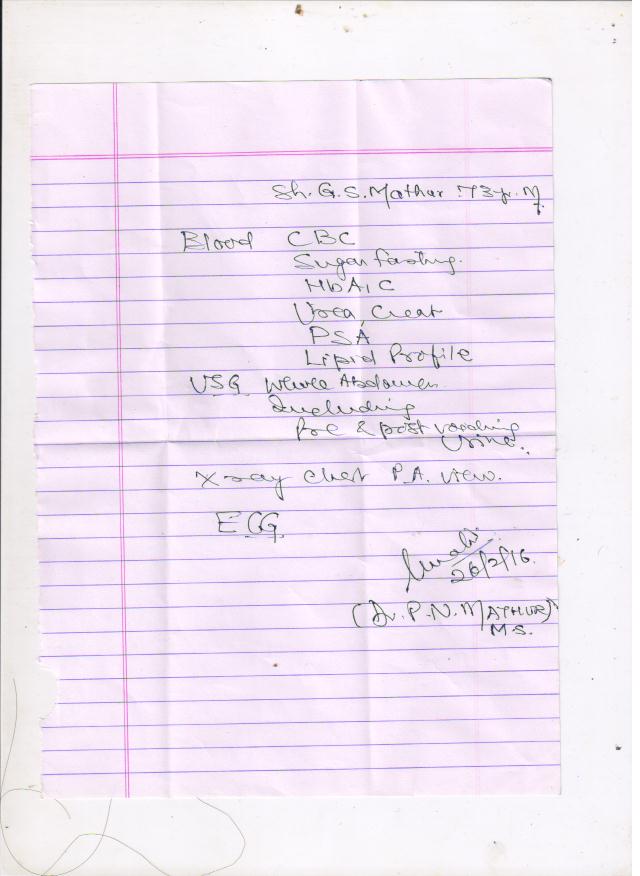 Sh. G. S. Mathur 73yr. M
Blood CBC
Sugar fasting.
HbA1C
Urea, Creat
PSA
Lipid Profile
USG Whole Abdomen
Including
Pre & post voiding
Urine.
X-ray Chest P.A. view.
ECG
26/2/16
(Dr. P. N. MATHUR)
M.S.